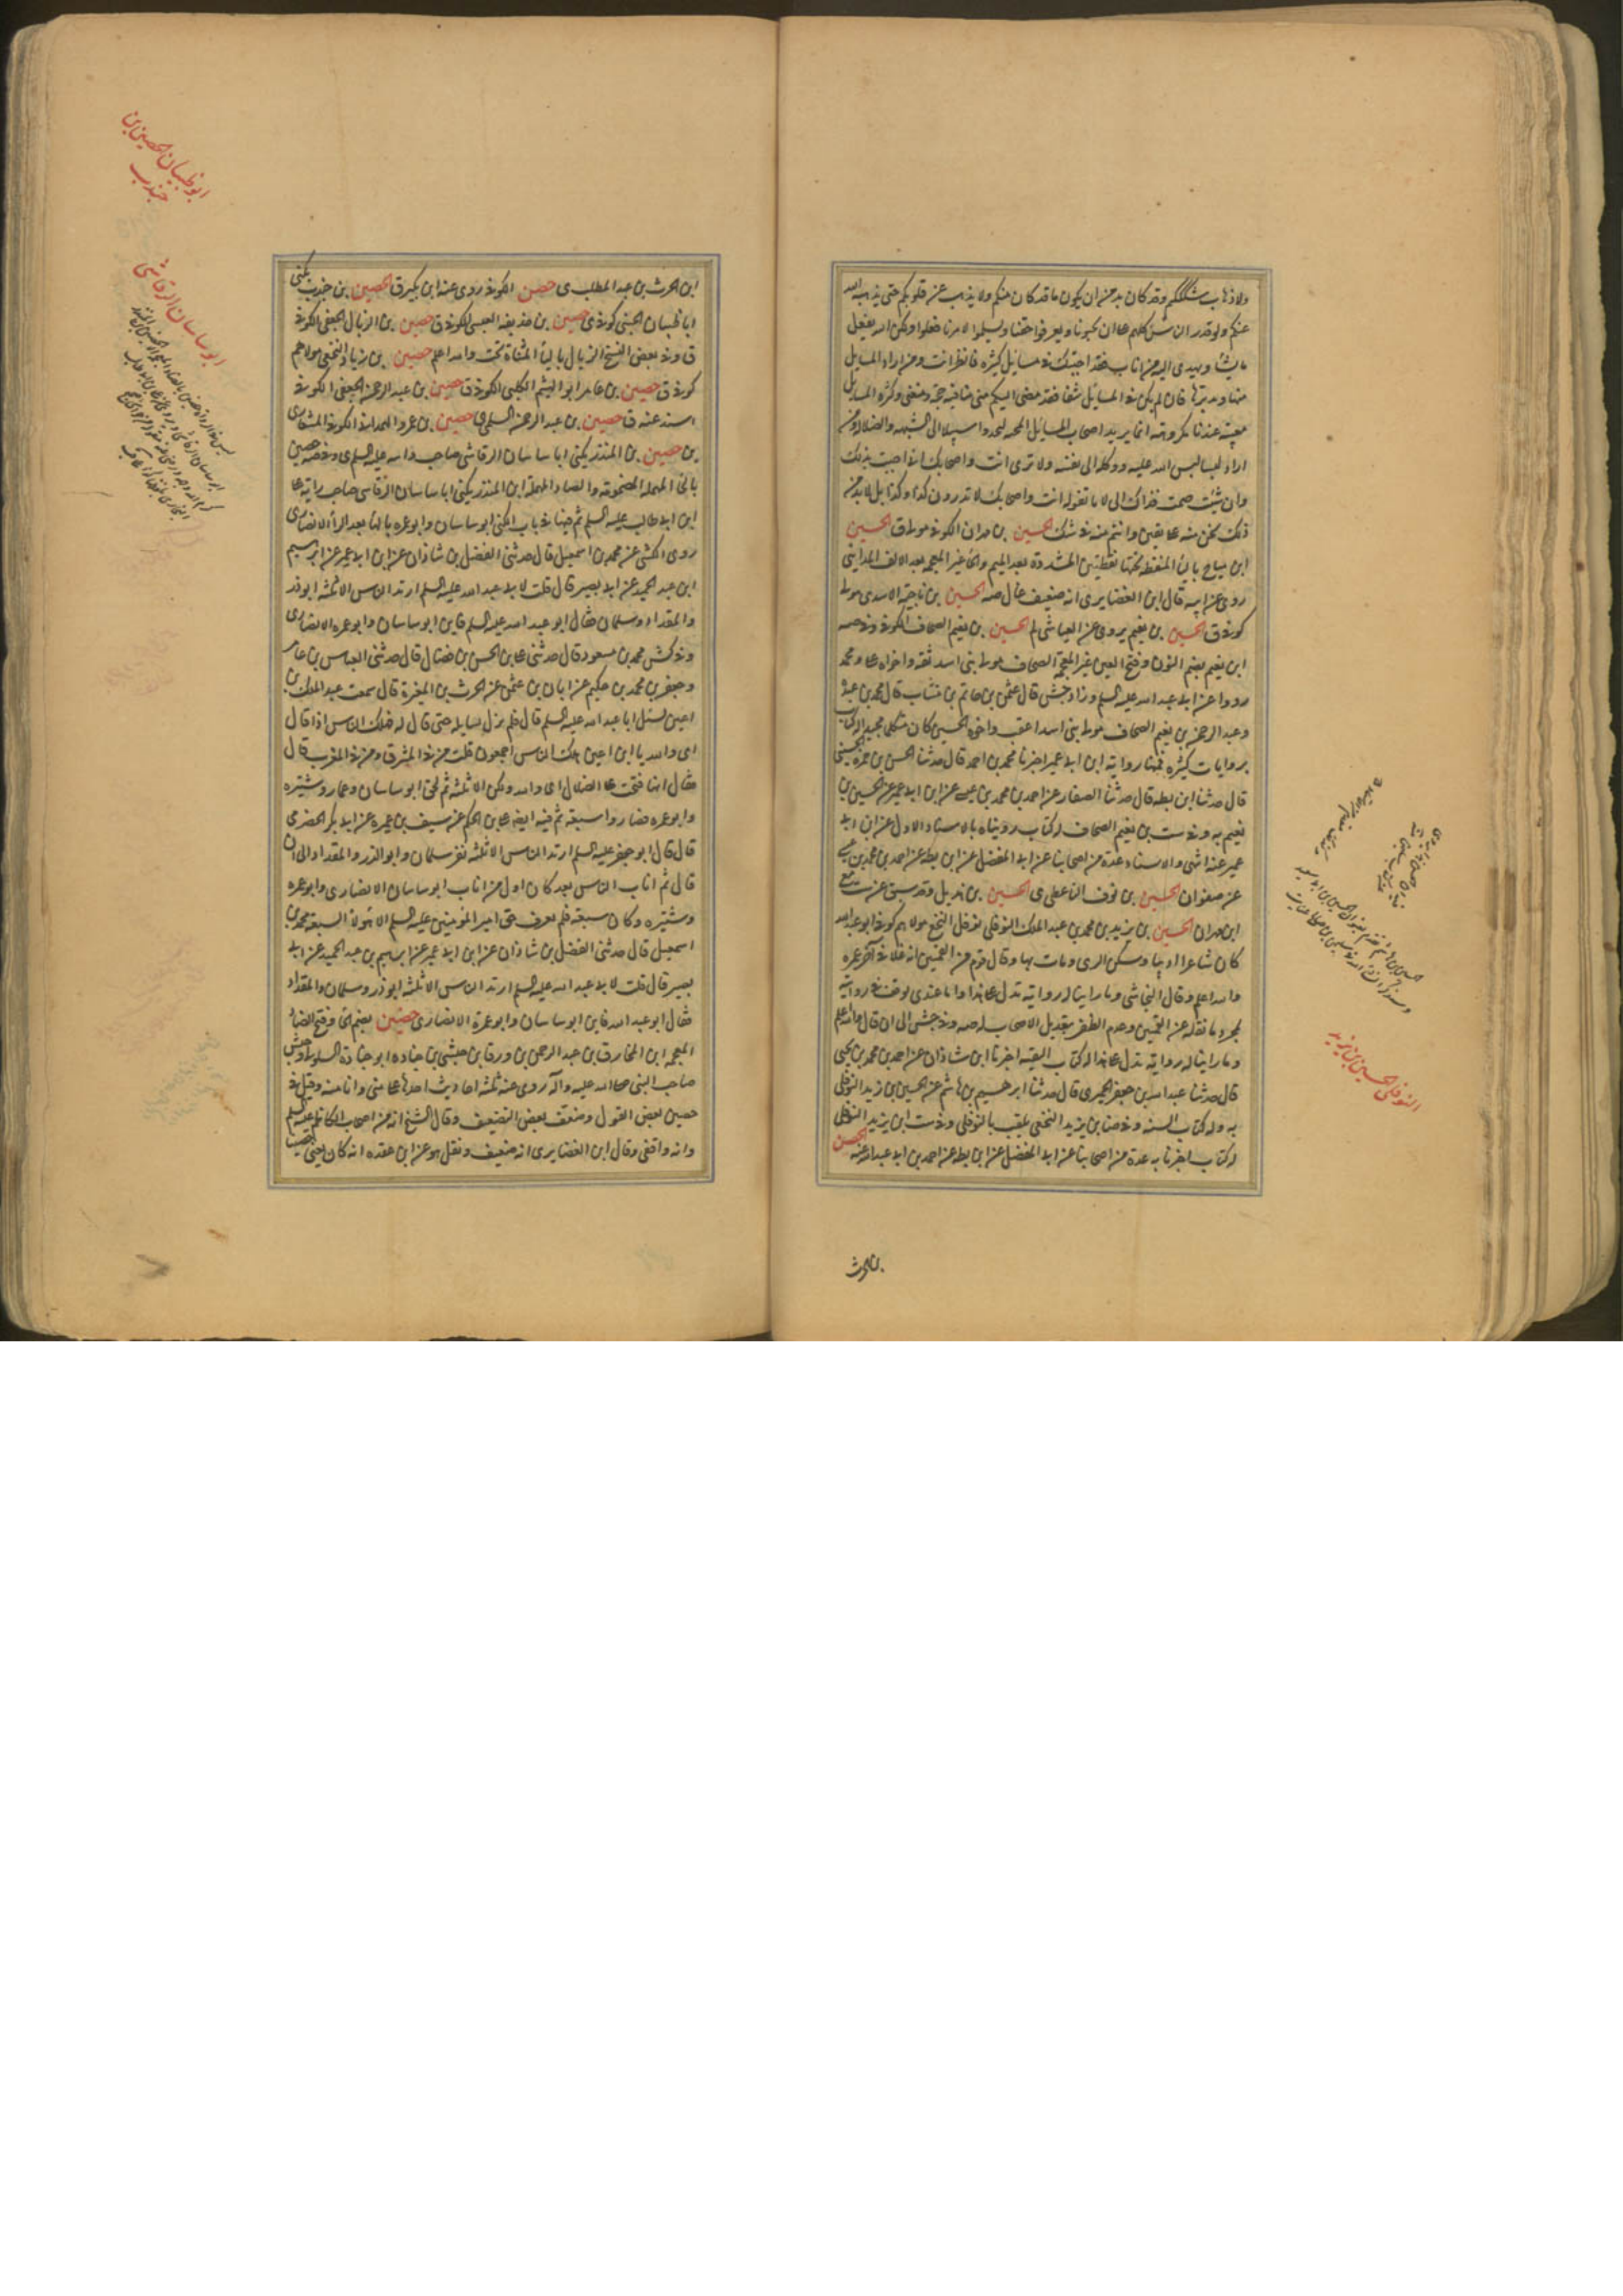 ولا ذهاب شككم وقد كان بد من ان يكون ما قد كان منكم ولا يذهب عن قلوبكم حتى يذهبه الله
عنكم ولو قدر الناس كلهم على ان يحبونا ويعرفوا حقنا ويسلموا لامرنا فعلوا ولكن الله يفعل
ما يشاء ويهدى اليه من اناب فقد اجبتك فى مسائل كثيره فانظر انت ومن اراد المسايل
منها وتدبرها فان لم يكن فى المسايل شفا فقد مضى اليكم منى ما فيه حجة ومقنع وكثرة المسايل
معيبة عندنا مكروهة انما يريد اصحاب المسايل المحنة ليجدوا سبيلا الى الشبهه والضلاله ومن
اراد لبسا لبس الله عليه ووكله الى نفسه ولا ترى انت واصحابك انى اجبت بذلك
وان شئت صمت فذاك الى لا ما تقوله انت واصحابك لا تدرون كذا وكذا بل لا بد من
ذلك نحن منه على يقين وانتم منه فى شك الحسين بن مهران الكوفى مولى ق الحسين
ابن مياح باليا المنقطة تحتها نقطتين المشددة بعد الميم والحا غير المعجمه بعد الالف المداينى
روى عن ابيه قال ابن الغضايرى انه ضعيف غال صه الحسين بن ناجية الاسدى مولى
كوفى ق الحسين بن نعيم يروى عن العياشى لم الحسين بن نعيم الصحاف الكوفى وفى صه
ابن نعيم بضم النون وفتح العين غير المعجمة الصحاف مولى بنى اسد ثقه واخواه على ومحمد
رووا عن ابى عبد الله عليه السلم وزاد جش قال عثمن بن حاتم بن منتاب قال محمد بن عبده
وعبد الرحمن بن نعيم الصحاف مولى بنى اسد اعقب واخوه الحسين كان متكلما مجيدا له كتاب
بروايات كثيره فمنها رواية ابن ابى عمير اخبرنا محمد بن احمد قال حدثنا الحسن بن حمزه الحسينى
قال حدثنا ابن بطه قال حدثنا الصفار عن احمد بن محمد بن عيسى عن ابن ابى عمير عن الحسين بن
نعيم به وفى ست بن نعيم الصحاف له كتاب رويناه بالاسناد الاول عن ابن ابى
عمير عنه انتهى والاسناد عدة من اصحابنا عن ابى المفضل عن ابن بطه عن احمد بن محمد بن عيسى
عن صفوان الحسين بن نوف الناعطى ى الحسين بن هذيل وقد سبق عن ست مع
ابن مهران الحسين بن يزيد بن محمد بن عبد الملك النوفلى نوفل النخع مولاهم كوفى ابو عبد الله
كان شاعرا اديبا وسكن الرى ومات بها وقال قوم من القميين انه غلا فى آخر عمره
والله اعلم وقال النجاشى وما راينا له رواية تدل على هذا واما عندى توقف فى روايته
لمجرد ما نقله عن القميين وعدم الظفر بتعديل الاصحاب له صه وفى جش الى ان قال والله اعلم
وما راينا له رواية تدل على هذا له كتاب التقيه اخبرنا ابن شاذان عن احمد بن محمد بن يحيى
قال حدثنا عبد الله بن جعفر الحميرى قال حدثنا ابرهيم بن هاشم عن الحسين بن يزيد النوفلى
به وله كتاب السنه وفى ضا بن يزيد النخعى يلقب بالنوفلى وفى ست ابن يزيد النوفلى
له كتاب اخبرنا به عدة من اصحابنا عن ابى المفضل عن ابن بطه عن احمد بن ابى عبد الله عنه الحصن
بن الحرث
النوفلى الحسين بن يزيد
ابن الحرث بن عبد المطلب ى حصن الكوفى روى عنه ابن بكير ق الحصين بن جندب يكنى
ابا ظبيان الجنبى كوفى ى حصين بن حذيفه العبسى الكوفى ق حصين بن الزبال الجعفى الكوفى
ق وفى بعض النسخ الزيال باليا المثناة تحت والله اعلم حصين بن زياد النخعى مولاهم
كوفى ق حصين بن عامر ابو الهيثم الكلبى الكوفى ق حصين بن عبد الرحمن الجعفى الكوفى
اسند عنه ق حصين بن عبد الرحمن السلمى ق حصين بن عمرو الهمدانى الكوفى المشعارى
بن حصين بن المنذر يكنى ابا ساسان الرقاشى صاحب رايته عليه السلم ى وفى صه حصين
بالحا المهملة المضمومة والضاد المهملة ابن المنذر يكنى ابا ساسان الرقاشى صاحب راية على
ابن ابى طالب عليه السلم ثم فيها فى باب الكنى ابو ساسان وابو عمره بالتا بعد الرا الانصارى
روى الكشى عن محمد بن اسمعيل قال حدثنى الفضل بن شاذان عن ابن ابى عمير عن ابرهيم
ابن عبد الحميد عن ابى بصير قال قلت لابى عبد الله عليه السلم ارتد الناس الا ثلثه ابو ذر
والمقداد وسلمان فقال ابو عبد الله عليه السلم فاين ابو ساسان وابو عمره الانصارى
وفى كش محمد بن مسعود قال حدثنى على بن الحسن بن فضال قال حدثنى العباس بن عامر
وجعفر بن محمد بن حكيم عن ابان بن عثمن عن الحرث بن المغيرة قال سمعت عبد الملك بن
اعين يسئل ابا عبد الله عليه السلم قال فلم يزل يسايله حتى قال له فهلك الناس اذا قال
اى والله يا ابن اعين هلك الناس اجمعون قلت من فى المشرق ومن فى المغرب قال
فقال انها فتحت على الضلال اى والله هلكوا الا ثلثه ثم لحق ابو ساسان وعمار وشتيره
وابو عمره فصاروا سبعة ثم فيه ايضا على بن الحكم عن سيف بن عميره عن ابى بكر الحضرمى
قال قال ابو جعفر عليه السلم ارتد الناس الا ثلثه نفر سلمان وابو الذر والمقداد الى ان
قال ثم اناب الناس بعد كان اول من اناب ابو ساسان الانصارى وابو عمره
وشتيره وكانوا سبعة فلم يعرف حق امير المؤمنين عليه السلم الا هولاء السبعة محمد بن
اسمعيل قال حدثنى الفضل بن شاذان عن ابن ابى عمير عن ابرهيم بن عبد الحميد عن ابى
بصير قال قلت لابى عبد الله عليه السلم ارتد الناس الا ثلثه ابو ذر وسلمان والمقداد
فقال ابو عبد الله فاين ابو ساسان وابو عمرة الانصارى حضين بضم الحا وفتح الضاد
المعجمه ابن المخارق بن عبد الرحمن بن ورقا بن حبشى بن جناده ابو جنادة السلولى وحبشى
صاحب النبى صلى الله عليه وآله روى عنه ثلثه احاديث احدها على منى وانا منه وقيل فى
حصين بعض القول وضعف بعض التضعيف وقال الشيخ انه من اصحاب الكاظم عليه السلم
وانه واقفى وقال ابن الغضايرى انه ضعيف ونقل هو عن ابن عقده انه كان يضع الحديث
ابو ظبيان الحصين بن
جندب
ابو ساسان الرقاشى